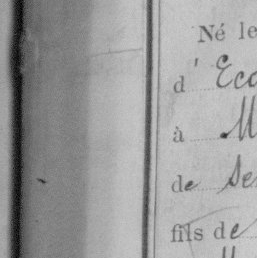 Né le
d'Eco
à M
de Se
fils de